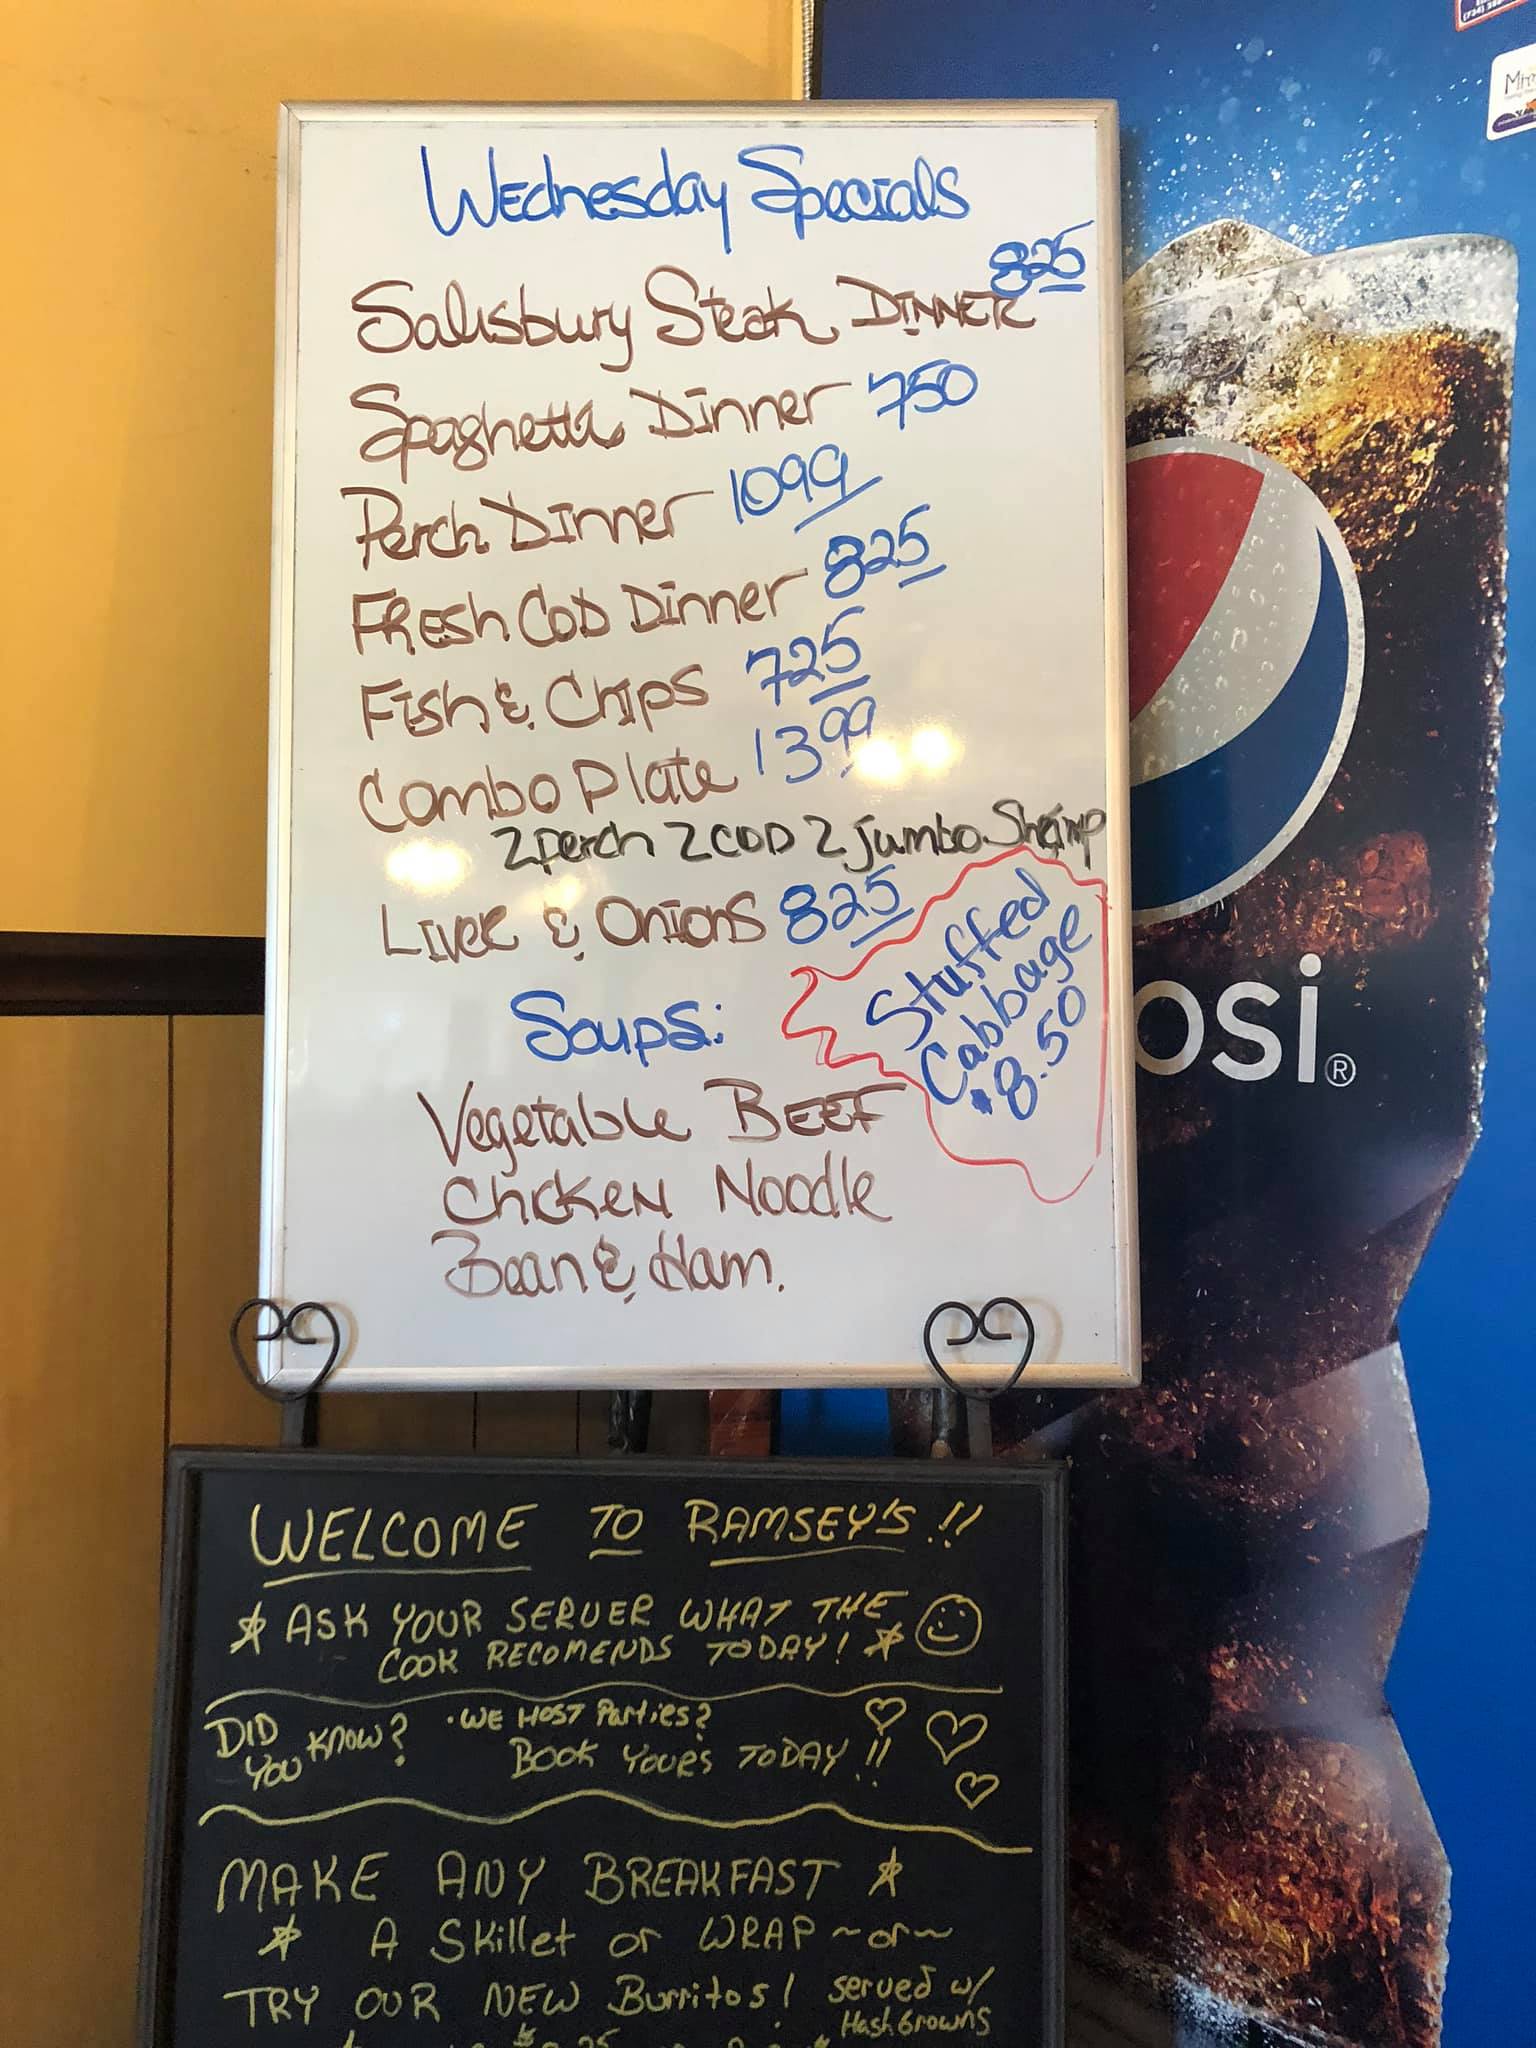 Wednesday Specials
Salisbury Steak Dinner 825
Spaghetti Dinner 750
Perch Dinner 1099
Fresh Cod Dinner 825
Fish & Chips 725
Combo Plate 1399
2 perch 2 COD 2 Jumbo Shrimp
Liver & Onions 825
Stuffed
Cabbage
$8.50
Soups:
Vegetable Beef
Chicken Noodle
Bean & Ham.
osi®
WELCOME TO RAMSEY'S!!
ASK YOUR SERVER WHAT THE
COOK RECOMENDS TODAY!
DID YOU KNOW? • WE HOST Parties?
BOOK YOURS TODAY!!
MAKE ANY BREAKFAST
A Skillet or WRAP ~or~
TRY OUR NEW Burritos! served w/
Hash Browns